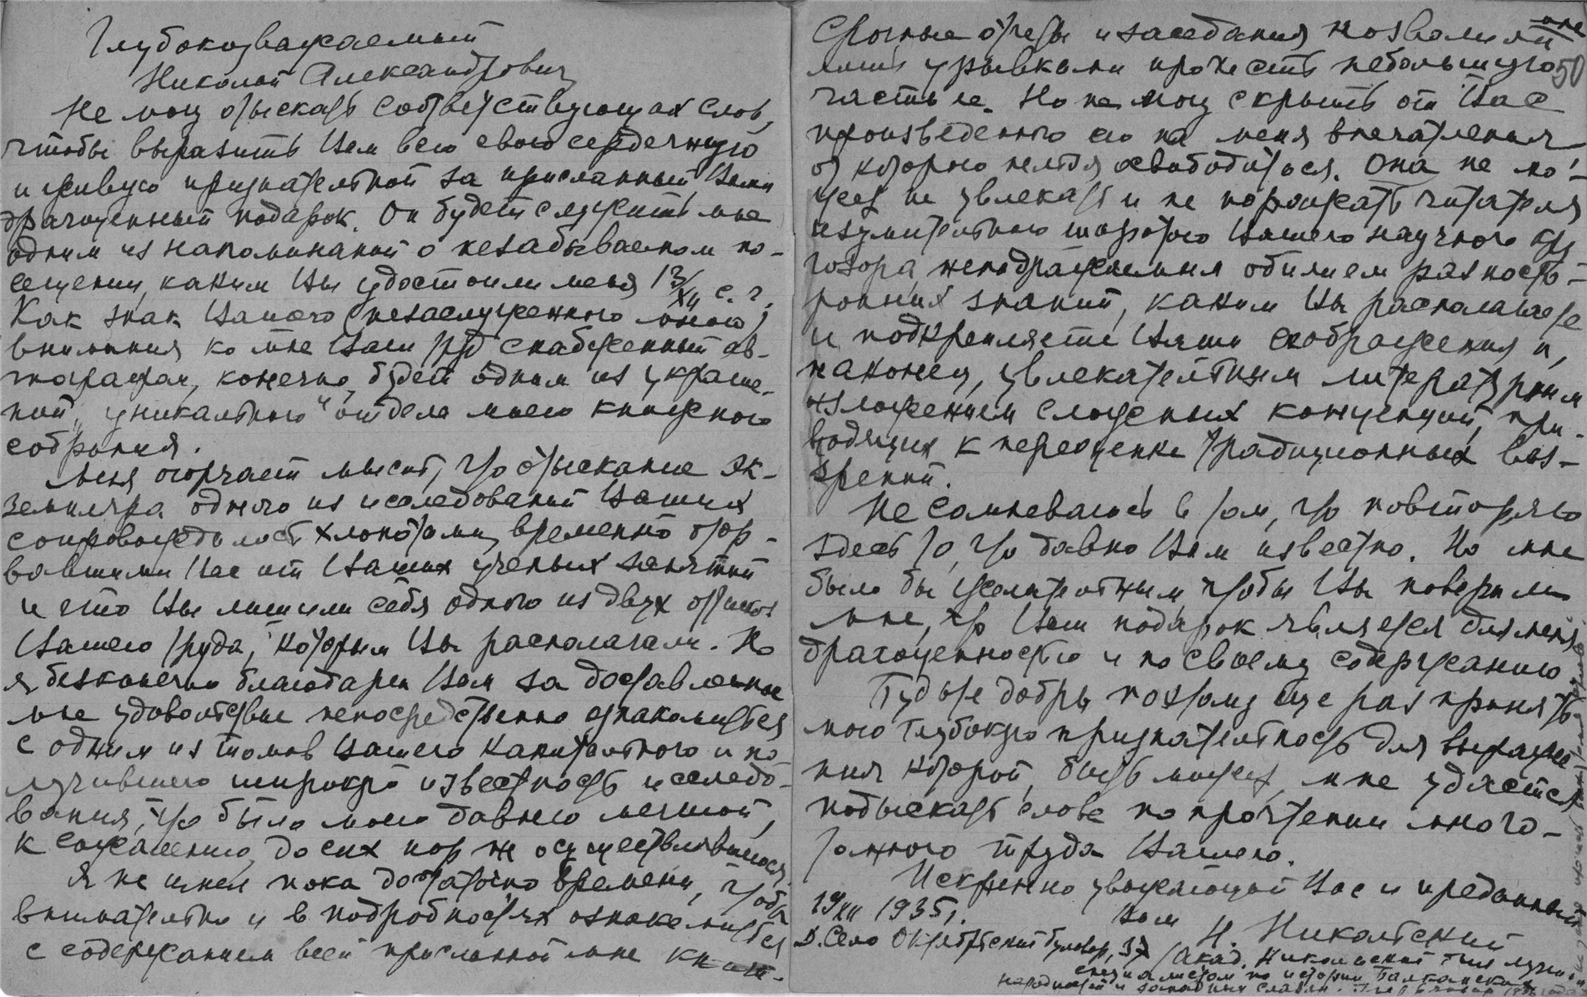 Глубокоуважаемый
Николай Александрович,
Не могу отыскать соответствующих слов,
чтобы выразить Вам всю свою сердечную
и живую признательной за присланный Вами
драгоценный подарок. Он будет служить мне
одним из напоминаний о незабываемом по-
сещении, каким Вы удостоили меня 13/XII с. г.
Как знак Вашего (незаслуженного мною)
внимания ко мне Ваш труд снабженный ав-
тографом, конечно, будет одним из украше-
ний „уникального" отдела моего книжного
собрания.
Меня огорчает мысль, что отыскание эк-
земпляра одного из исследований Ваших
сопровождалось хлопотами, временно отор-
вавшими Вас от Ваших ученых занятий
и что Вы лишили себя одного из двух оттисков
Вашего труда, которым Вы располагали. Но
я бесконечно благодарен Вам за доставленное
мне удовольствие непосредственно ознакомиться
с одним из томов Вашего капитального и по-
лучившего широкую известность исследо-
вания, что было моею давнею мечтой,
к сожалению, до сих пор не осуществлявшейся.
Я не имел пока достаточно времени, чтобы
внимательно и в подробностях ознакомиться
с содержанием всей присланной мне книги.
50
Срочные отчеты и заседания позволили мне
лишь урывками прочесть небольшую
часть ее. Но не могу скрыть от Вас
произведенного ею на меня впечатления
от которого нельзя освободиться. Она не мо-
жет не увлекать и не поражать читателя
изумительною широтою Вашего научного кру-
гозора, неподражаемым обилием разносто-
ронних знаний, каким Вы располагаете
и подкрепляете Ваши соображения и,
наконец, увлекательным литературным
изложением сложных концепций, при-
водящих к переоценке традиционных воз-
зрений.
Не сомневаюсь в том, что повторяю
здесь то, что давно Вам известно. Но мне
было бы желательным, чтобы Вы поверили
мне, что Ваш подарок является для меня
драгоценностью и по своему содержанию.
Будьте добры поэтому еще раз принять
мою глубокую признательность для выраже-
ния которой, быть может, мне удастся
подыскать слова по прочтении много-
томного труда Вашего.
Искренно уважающий Вас и преданный
Вам Н. Никольский
19/XII 1935 г.
Д. Село Октябрьский бульвар, 37
(Акад. Никольский был лучшим
специалистом по истории Балканских
народностей и западных славян.